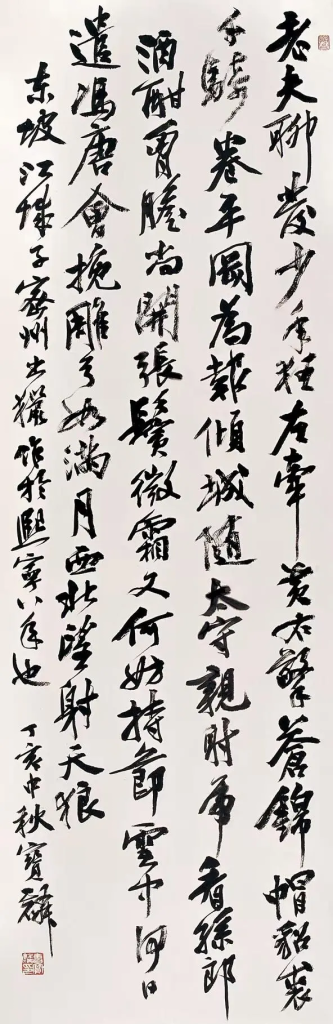 老夫聊發少年狂左牽黄右擎蒼錦帽貂裘
千騎卷平岡為報傾城隨太守親射虎看孫郎
酒酣胷膽尚開張鬢微霜又何妨持節雲中何日
遣馮唐會挽雕弓如滿月西北望射天狼
东坡江城子密州出獵作於熙寧八年也 丁亥中秋寶